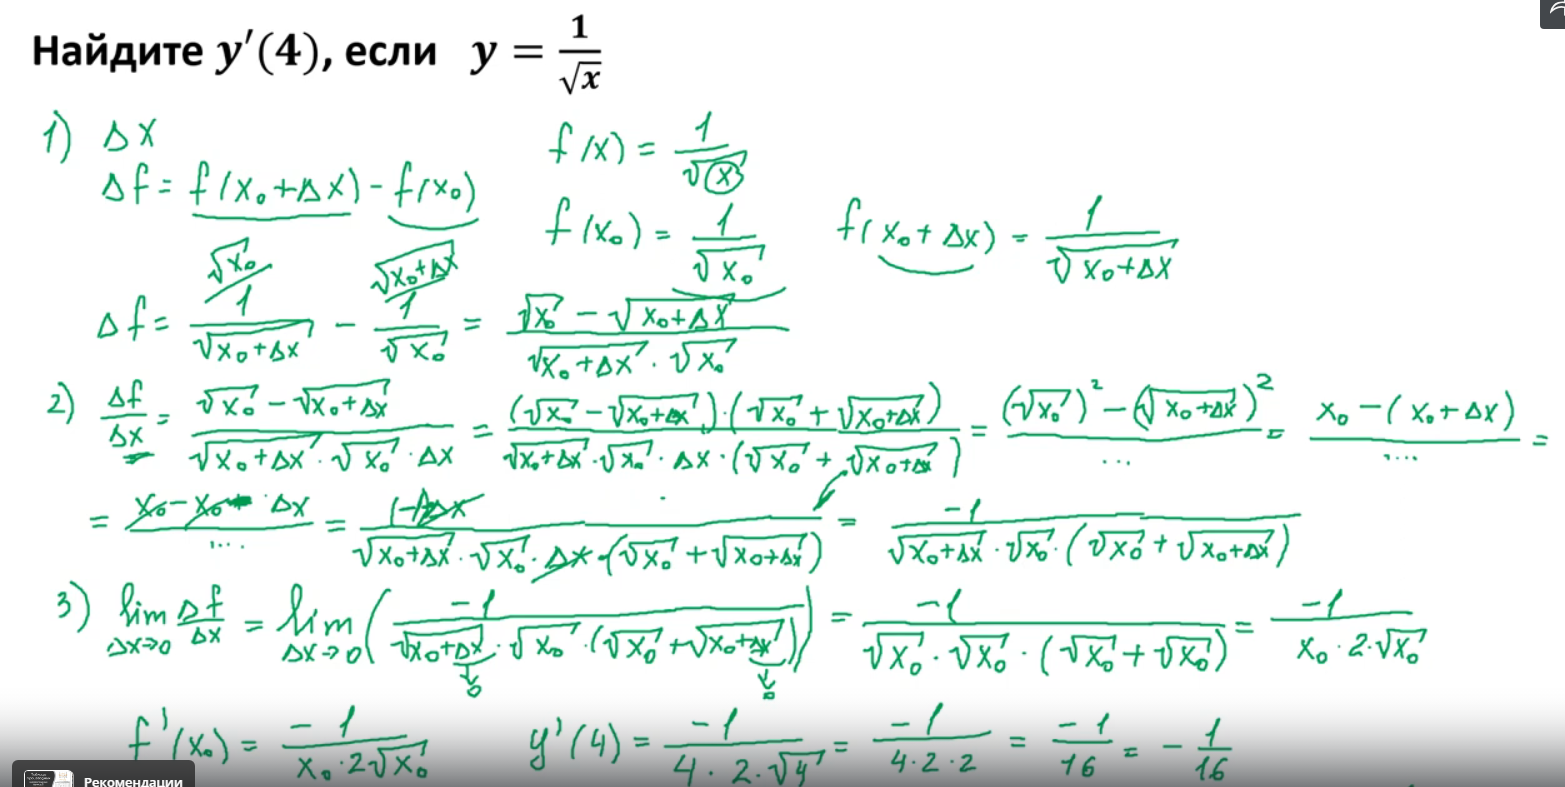 Найдите y′(4), если y = 1/√x
1) Δx
f(x) = 1/√x
Δf = f(x₀+Δx) - f(x₀)
f(x₀) = 1/√x₀
f(x₀+Δx) = 1/√(x₀+Δx)
√x₀ √(x₀+Δx)
Δf = 1/√(x₀+Δx) - 1/√x₀ = (√x₀ - √(x₀+Δx))/(√(x₀+Δx) · √x₀)
2) Δf/Δx = (√x₀ - √(x₀+Δx))/(√(x₀+Δx) · √x₀ · Δx) = ((√x₀ - √(x₀+Δx)) · (√x₀ + √(x₀+Δx)))/(√(x₀+Δx) · √x₀ · Δx · (√x₀ + √(x₀+Δx))) = ((√x₀)² - (√(x₀+Δx))²)/... = (x₀ - (x₀+Δx))/... =
= (x₀ - x₀ - Δx)/... = (-1·Δx)/(√(x₀+Δx) · √x₀ · Δx · (√x₀ + √(x₀+Δx))) = -1/(√(x₀+Δx) · √x₀ · (√x₀ + √(x₀+Δx)))
3) lim Δx→0 Δf/Δx = lim Δx→0 (-1/(√(x₀+Δx) · √x₀ · (√x₀ + √(x₀+Δx)))) = -1/(√x₀ · √x₀ · (√x₀ + √x₀)) = -1/(x₀ · 2 · √x₀)
0 0
f'(x₀) = -1/(x₀ · 2√x₀) y'(4) = -1/(4 · 2 · √4) = -1/(4 · 2 · 2) = -1/16 = - 1/16
Рекомендации